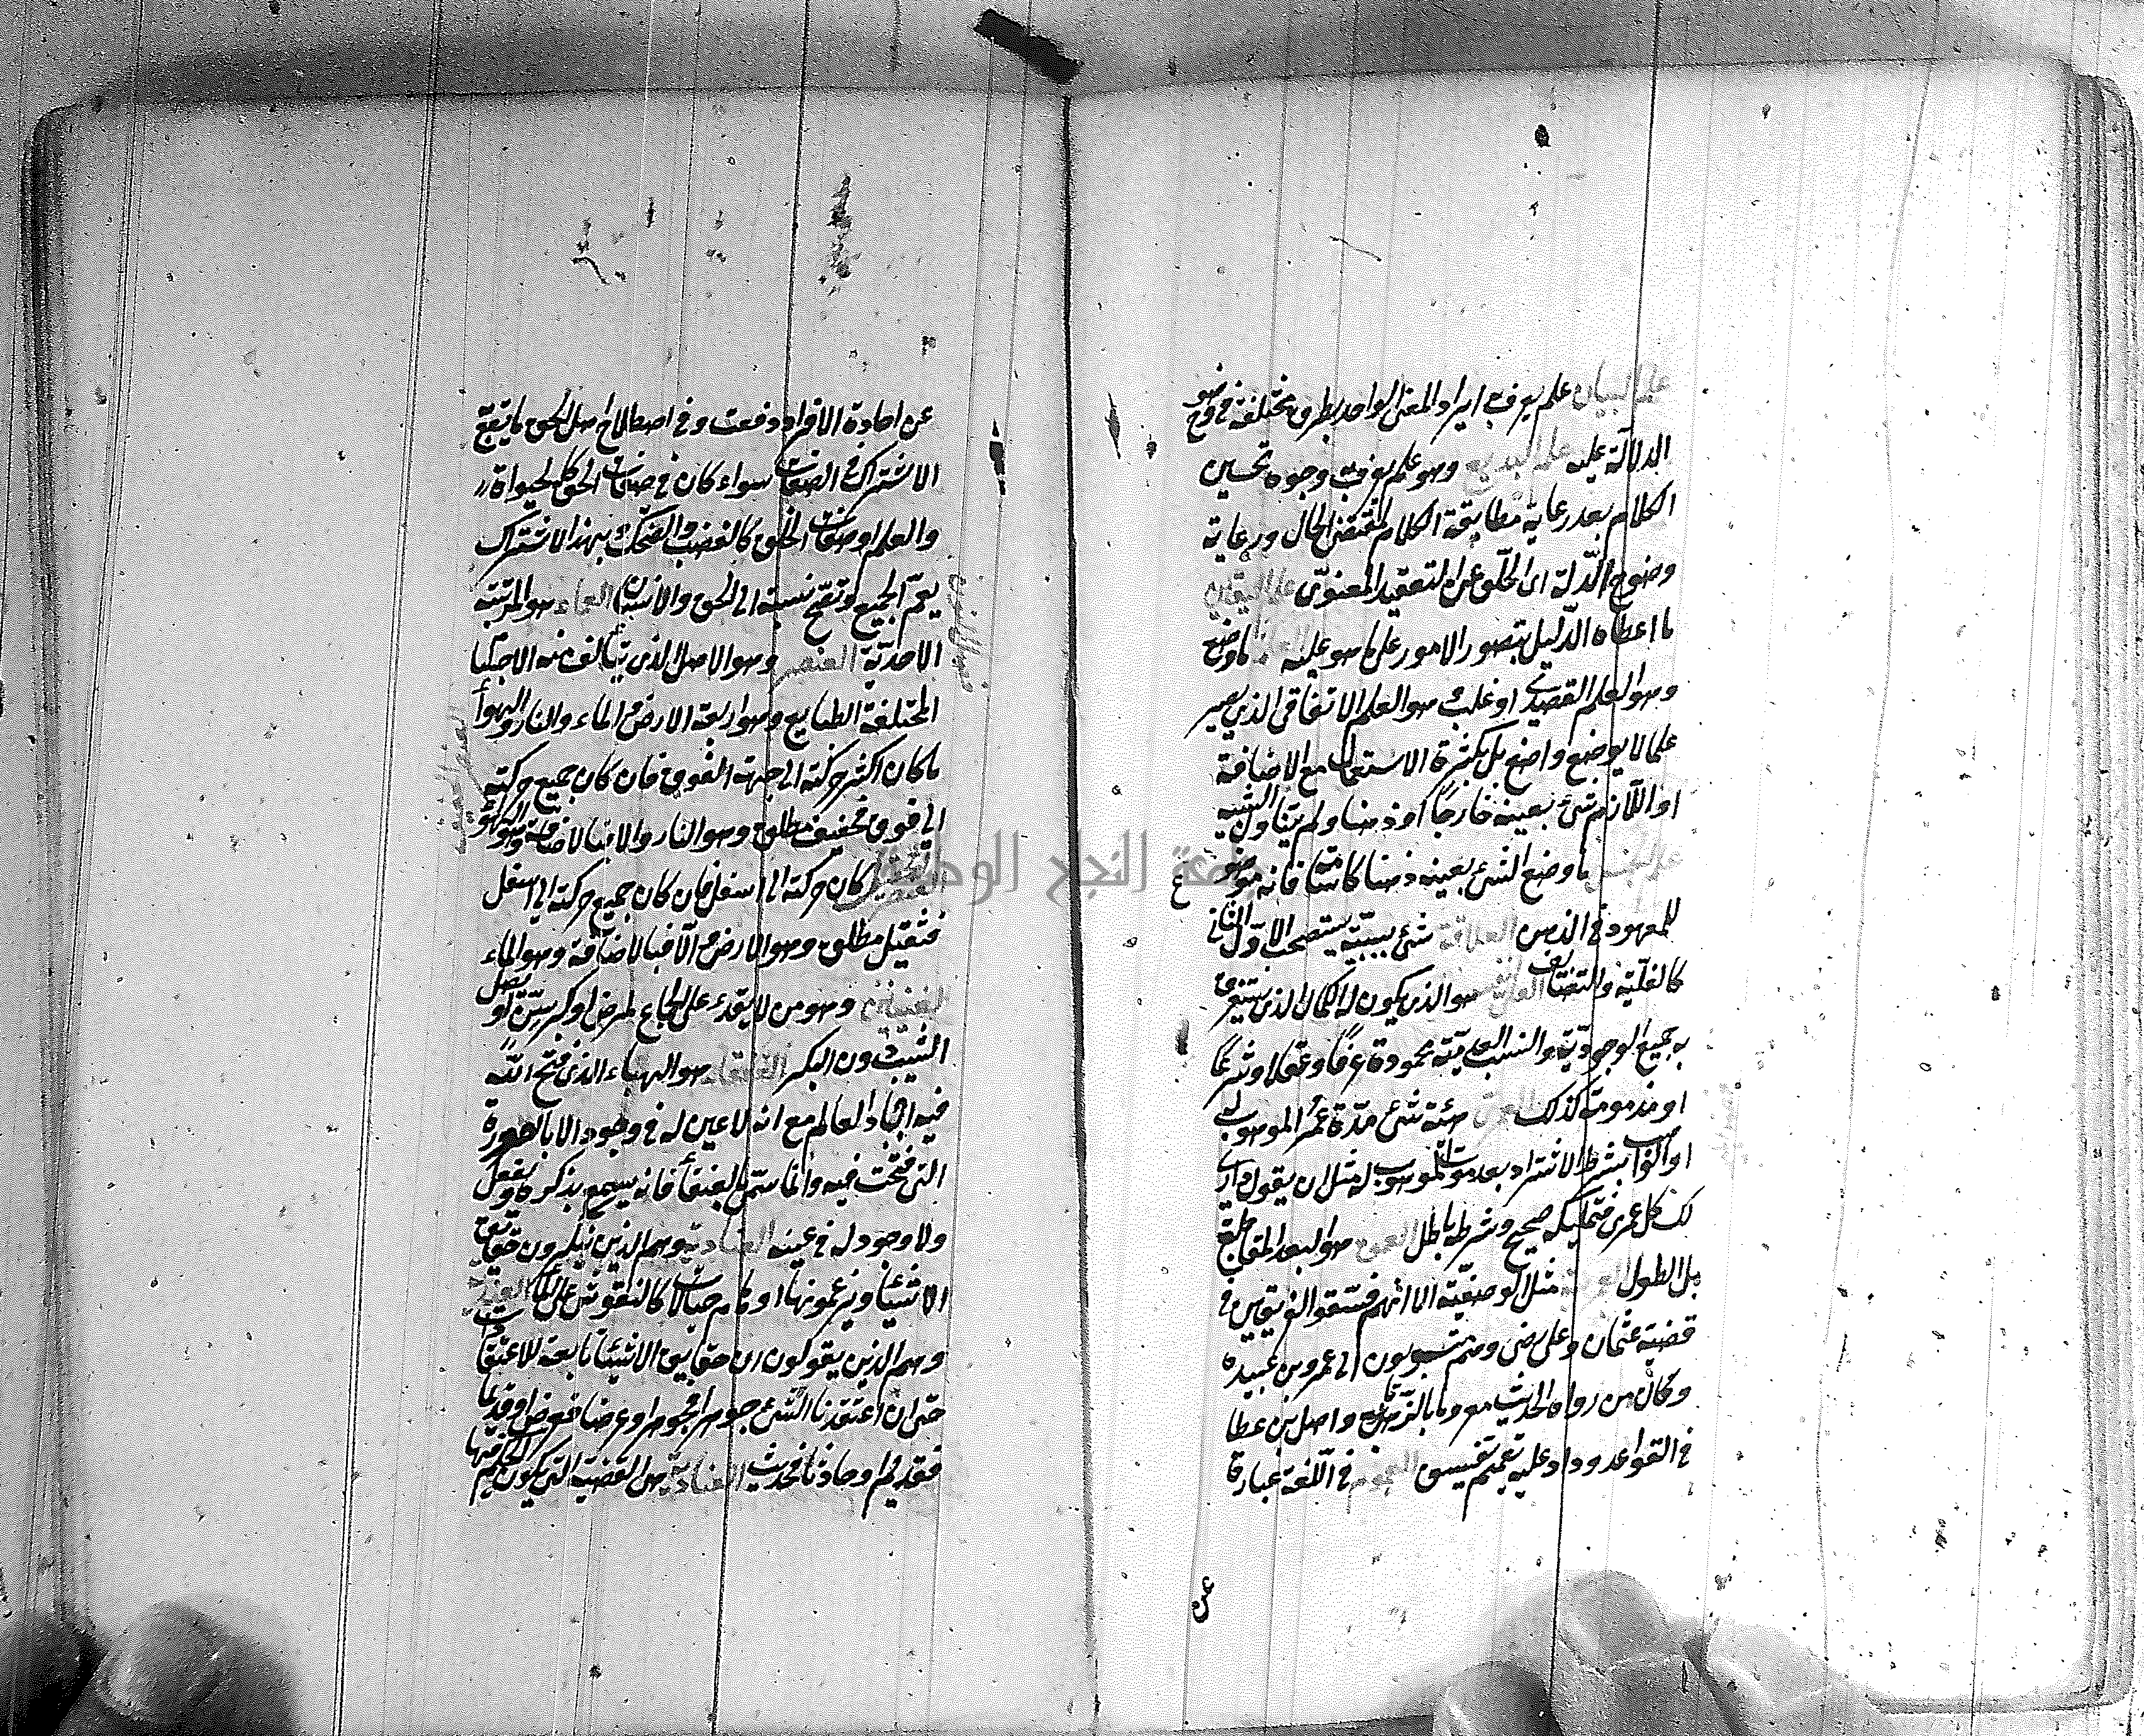 علم البيان علم يعرف به ايراد المعنى الواحد بطرق مختلفة في وضوح
الدلالة عليه علم البديع وهو علم يعرف به وجوه تحسين
الكلام بعد رعاية مطابقة الكلام لمقتضى الحال ورعاية
وضوح الدلالة اى الخلو عن التعقيد المعنوى علم اليقين
ما اعطاه الدليل بتصور الامور على ما هو عليه ما وضع
وهو العلم القصدى او غلب هو العلم الاتفاقى الذى يصير
علما لا بوضع واضع بل بكثرة الاستعمال مع الاضافة
او اللازم لشئ بعينه خارجا او ذهنا ولم يتناول الشبيه
علم الجنس ما وضع لشئ بعينه ذهنا كاسامة فانه موضوع
للمعهود في الذهن العلاقة شئ بسببه يستصحب الاول الثانى
كالعلية والتضايف العلى لنفسه هو الذى يكون له الكمال الذى يستغرق
به جميع الوجودية والنسب العدمية محمودة عرفا وعقلا وشرعا
او مذمومة كذلك العمرى هبة شئ مدة عمر الموهوب له
او الواهب بشرط الاسترداد بعد موت الموهوب له مثل ان يقول دارى
لك عمرى فتمليكه صحيح وشرطه باطل العمق هو البعد المقاطع
للطول مثل الواصلية الا انهم فسقوا الفريقين في
قضية عثمان وعلى رضى وهم منسوبون الى عمرو بن عبيد
وكان من رواة الحديث معروفا بالزهد واصل بن عطا
في القواعد وزاد عليه تعميم تفسيق العموم في اللغة عبارة
عن
عن احاطة الافراد دفعة وفي اصطلاح اهل الحق ما يقع به
الاشتراك في الصفات سواء كان في صفات الحق كالحيواة
والعلم او صفات الخلق كالغضب والضحك بهذا الاشتراك
يعم الجميع وتصح نسبته الى الحق والانسان العماء هو المرتبة
الاحدية العنصر وهو الاصل الذى يتألف منه الاجسام
المختلفة الطبايع وهو اربعة الارض والماء والنار والهوأ
ما كان اكثر حركته الى جهة الفوق فان كان جميع حركته
الى فوق فخفيف مطلق وهو النار والا فبالاضافة وهو الهوأ
العنصر الثقيل كان حركته الى اسفل فان كان جميع حركته الى اسفل
فثقيل مطلق وهو الارض والا فبالاضافة وهو الماء
العنين وهو من لا يقدر على الجماع لمرض او كبر سن او يصل
الثيب دون البكر العنقاء هو الهباء الذى فتح الله
فيه اجساد العالم مع انه لا عين له في وجود الا بالصورة
التى فتحت فيه وانما سمى بالعنقأ فانه يسمع بذكره ويعقل
ولا وجود له في عينه العنادية وهم الذين ينكرون حقايق
الاشيأ ويزعمونها اوهام وخيالات كالنقوش على الماء العندية
وهم الذين يقولون ان حقايق الاشيأ تابعة للاعتقادات
حتى ان اعتقدنا الشئ جوهرا فجوهر او عرضا فعرض او قديما
فقديم او حادثا فحادث العنادية هى القضية التى يكون الحكم فيها